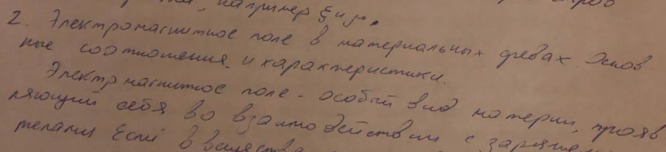 например ξ и μ.
2. Электромагнитное поле в материальных средах. Основ-
ные соотношения и характеристики.
Электромагнитное поле - особый вид материи, прояв
ляющий себя во взаимодействии с
телами Если в